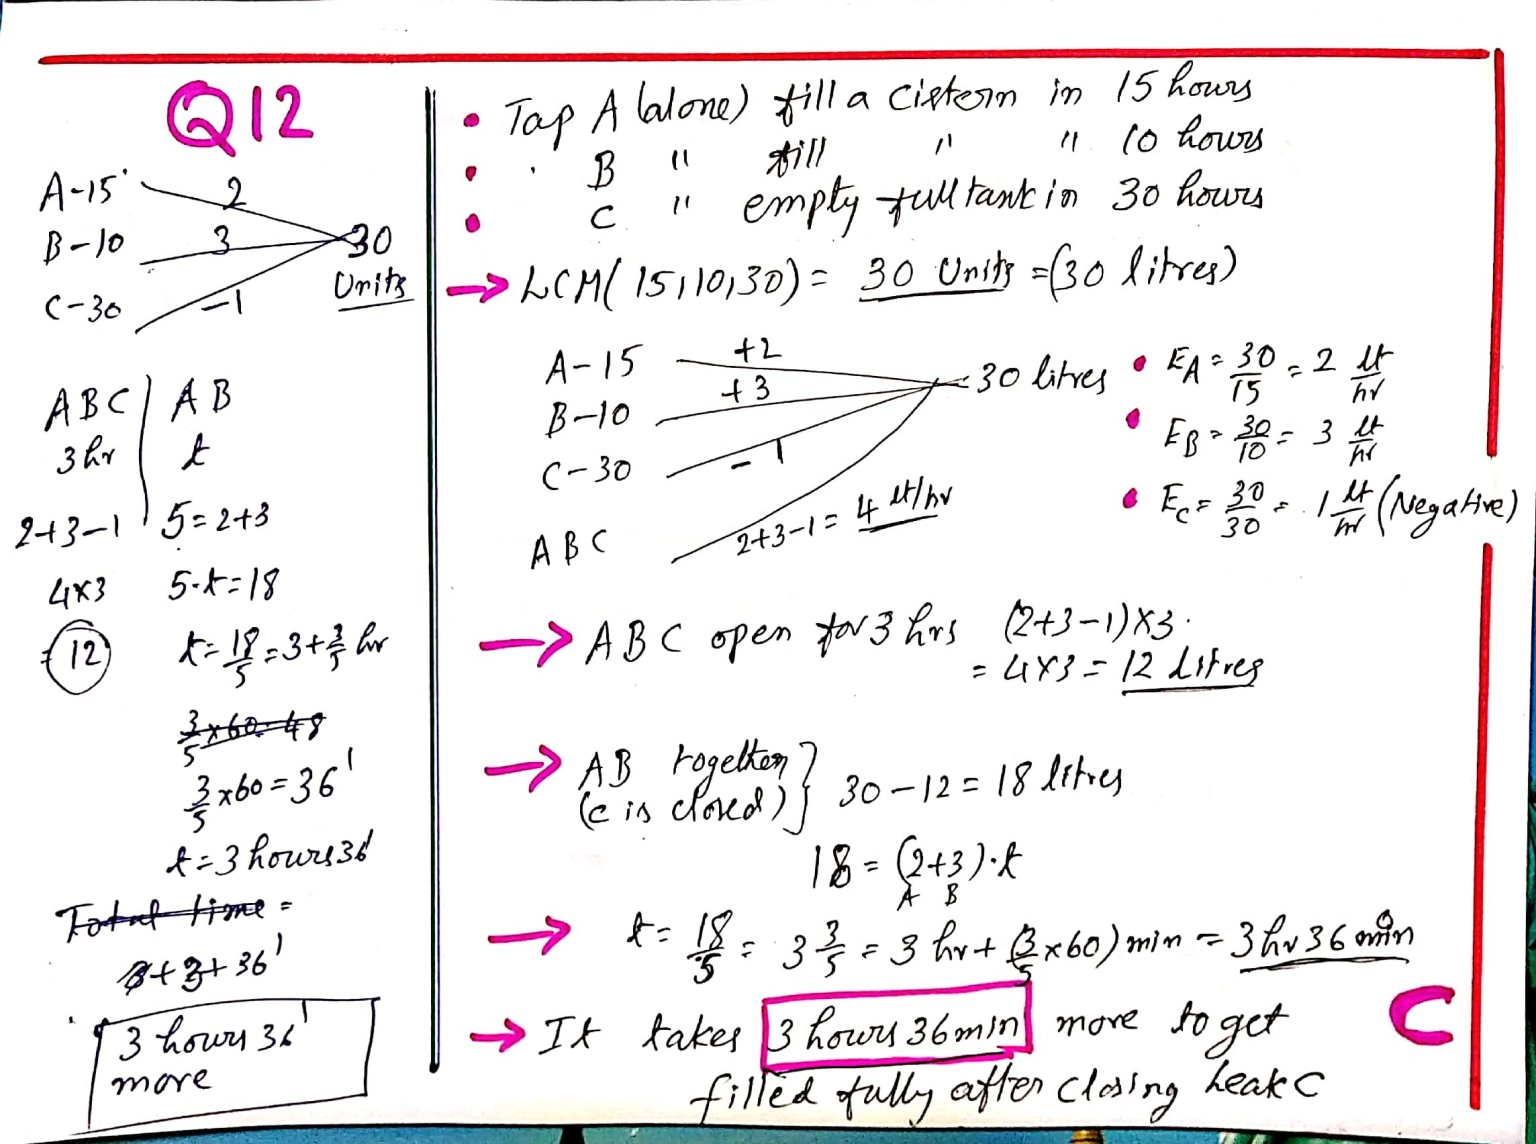 Q12
A-15 2
B-10 3 30
C-30 -1 Units
ABC AB
3hr t
2+3-1 5=2+3
4x3 5.t=18
12 t=18/5=3+3/5 hr
3/5x60=48
3/5x60=36'
t=3 hours 36'
Total time =
3+3+36'
3 hours 36'
more
• Tap A (alone) fill a Cistern in 15 hours
• B " fill " " 10 hours
• C " empty full tank in 30 hours
→ LCM(15,10,30) = 30 Units =(30 litres)
A-15 +2
B-10 +3 30 litres
C-30 -1
ABC 2+3-1= 4 lt/hr
• EA = 30/15 = 2 lt/hr
• EB = 30/10 = 3 lt/hr
• EC = 30/30 = 1 lt/hr (Negative)
→ ABC open for 3 hrs (2+3-1)x3
= 4x3 = 12 Litres
→ AB together
(C is closed) } 30-12 = 18 litres
18 = (2+3).t
A B
→ t = 18/5 = 3 3/5 = 3 hr + (3/5 x60) min = 3 hr 36 min
→ It takes 3 hours 36 min more to get C
filled fully after closing Leak C